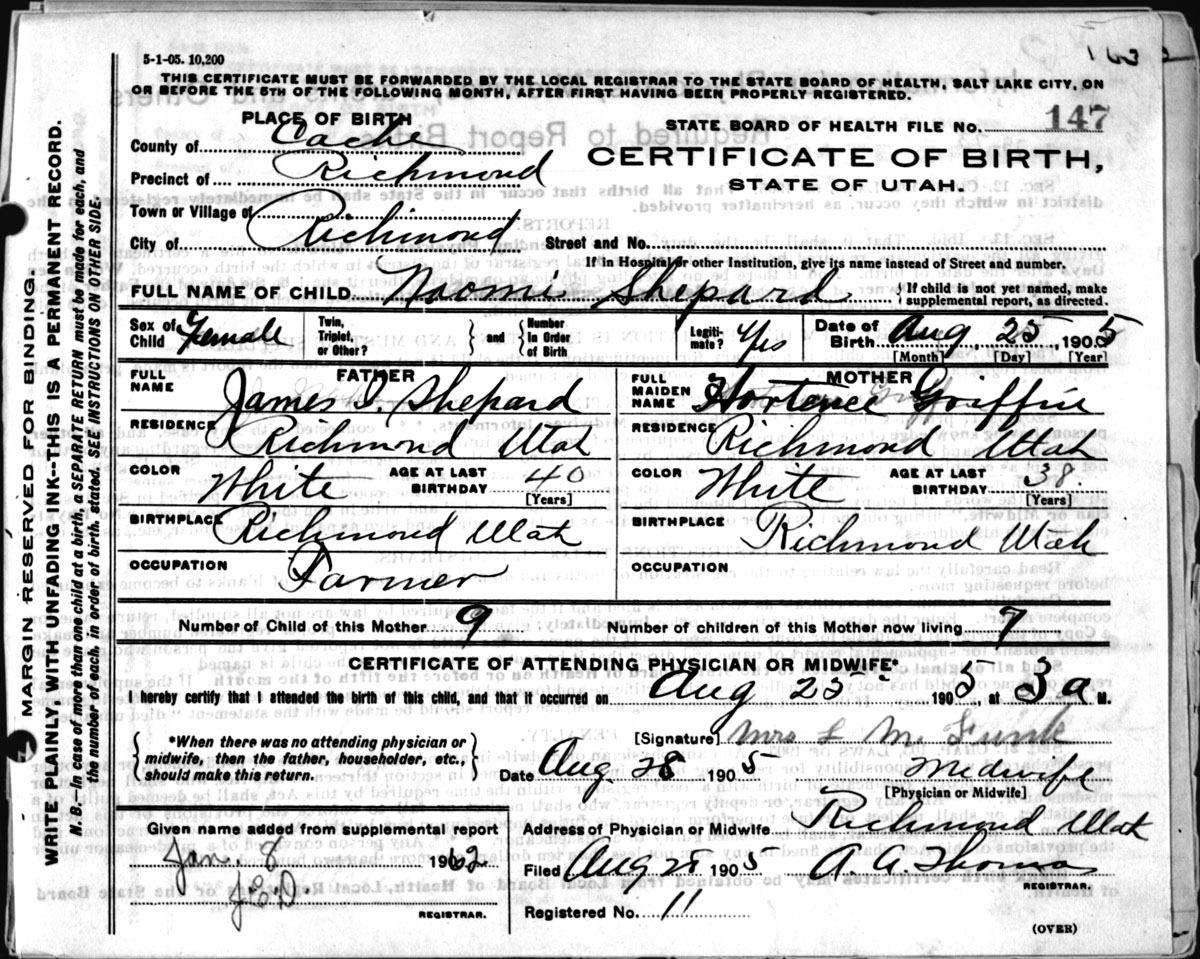 5-1-05. 10,200
163
THIS CERTIFICATE MUST BE FORWARDED BY THE LOCAL REGISTRAR TO THE STATE BOARD OF HEALTH, SALT LAKE CITY, ON
OR BEFORE THE 5TH OF THE FOLLOWING MONTH, AFTER FIRST HAVING BEEN PROPERLY REGISTERED.
PLACE OF BIRTH
STATE BOARD OF HEALTH FILE NO. 147
County of Cache
CERTIFICATE OF BIRTH,
Precinct of Richmond
STATE OF UTAH.
Town or Village of
City of Richmond Street and No.
If in Hospital or other Institution, give its name instead of Street and number.
FULL NAME OF CHILD Naomi Shepard {If child is not yet named, make
supplemental report, as directed.
Sex of Child Female
Twin, Triplet, or Other? } and { Number In Order of Birth
Legiti-mate? Yes
Date of Birth Aug 25 1905
[Month] [Day] [Year]
FATHER
FULL NAME James I. Shepard
MOTHER
FULL MAIDEN NAME Hortence Griffin
RESIDENCE Richmond Utah
RESIDENCE Richmond Utah
COLOR White AGE AT LAST BIRTHDAY 40 [Years]
COLOR White AGE AT LAST BIRTHDAY 38 [Years]
BIRTHPLACE Richmond Utah
BIRTHPLACE Richmond Utah
OCCUPATION Farmer
OCCUPATION
Number of Child of this Mother 9 Number of children of this Mother now living 7
CERTIFICATE OF ATTENDING PHYSICIAN OR MIDWIFE*
I hereby certify that I attended the birth of this child, and that it occurred on Aug 25 1905, at 3 a M.
{*When there was no attending physician or
midwife, then the father, householder, etc.,
should make this return.}
[Signature] Mrs L M. Funk
Date Aug. 28 1905 Midwife
[Physician or Midwife]
Given name added from supplemental report
Jan. 8 1962
J.E.D.
REGISTRAR.
Address of Physician or Midwife Richmond Utah
Filed Aug 28 1905 A. A. Thomas
REGISTRAR.
Registered No. 11
(OVER)
MARGIN RESERVED FOR BINDING.
WRITE PLAINLY WITH UNFADING INK--THIS IS A PERMANENT RECORD.
N. B.—In case of more than one child at a birth, a SEPARATE RETURN must be made for each, and
the number of each, in order of birth, stated. SEE INSTRUCTIONS ON OTHER SIDE.